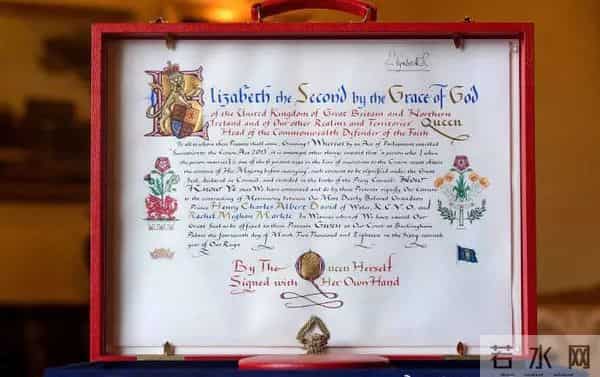 Elizabeth R
Elizabeth the Second by the Grace of God
of the United Kingdom of Great Britain and Northern
Ireland and of Our other Realms and Territories Queen
Head of the Commonwealth Defender of the Faith
To all to whom these Presents shall come, Greeting! Whereas by an Act of Parliament entitled
Succession to the Crown Act 2013 it is amongst other things enacted that a person who when
the person marries is one of the 6 persons next in the line of succession to the Crown must obtain
the consent of Her Majesty before marrying, such consent to be signified under the Great
Seal, declared in Council, and recorded in the books of the Privy Council. Now
Know Ye that We have consented and do by these Presents signify Our Consent
to the contracting of Matrimony between Our Most Dearly Beloved Grandson
Prince Henry Charles Albert David of Wales, K.C.V.O. and
Rachel Meghan Markle. In Witness whereof We have caused Our
Great Seal to be affixed to these Presents. Given at Our Court at Buckingham
Palace the fourteenth day of March Two Thousand and Eighteen in the sixty-seventh
year of Our Reign
By The Queen Herself
Signed with Her Own Hand
若水网